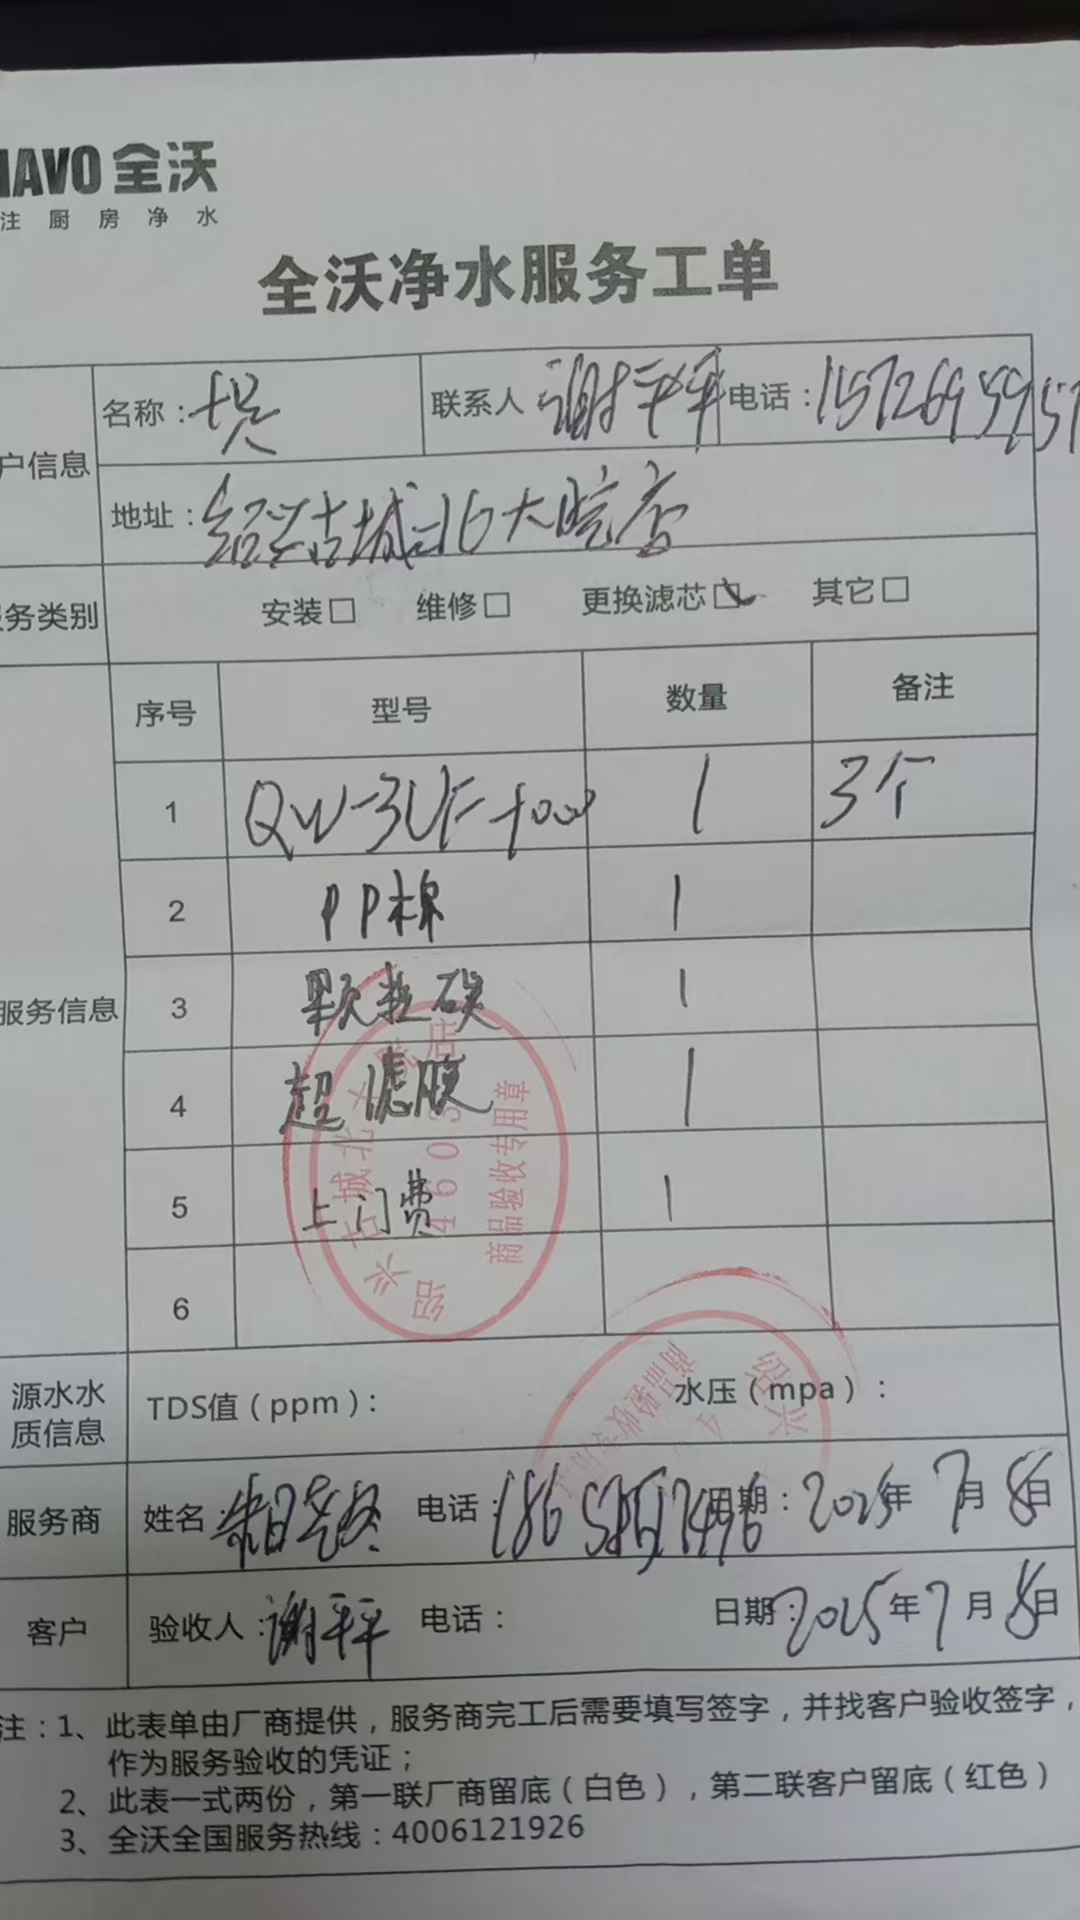 IAVO 全沃
注厨房净水
全沃净水服务工单
户信息 名称: 联系人 谢平平 电话: 1572695957
地址: 绍兴古城北大院店
务类别 安装□ 维修□ 更换滤芯☑ 其它□
序号 型号 数量 备注
1 QW-3UF 1 3个
2 PP棉 1
服务信息 3 颗粒碳 1
4 超滤膜 1
5 上门费 1
6
绍兴古城北大院店
商品验收专用章
源水水质信息 TDS值(ppm): 水压(mpa):
绍兴
商品验收专用
服务商 姓名: 电话: 日期: 2025年7月8日
客户 验收人: 谢平平 电话: 日期: 2025年7月8日
注:1、此表单由厂商提供,服务商完工后需要填写签字,并找客户验收签字,
作为服务验收的凭证;
2、此表一式两份,第一联厂商留底(白色),第二联客户留底(红色)
3、全沃全国服务热线:4006121926